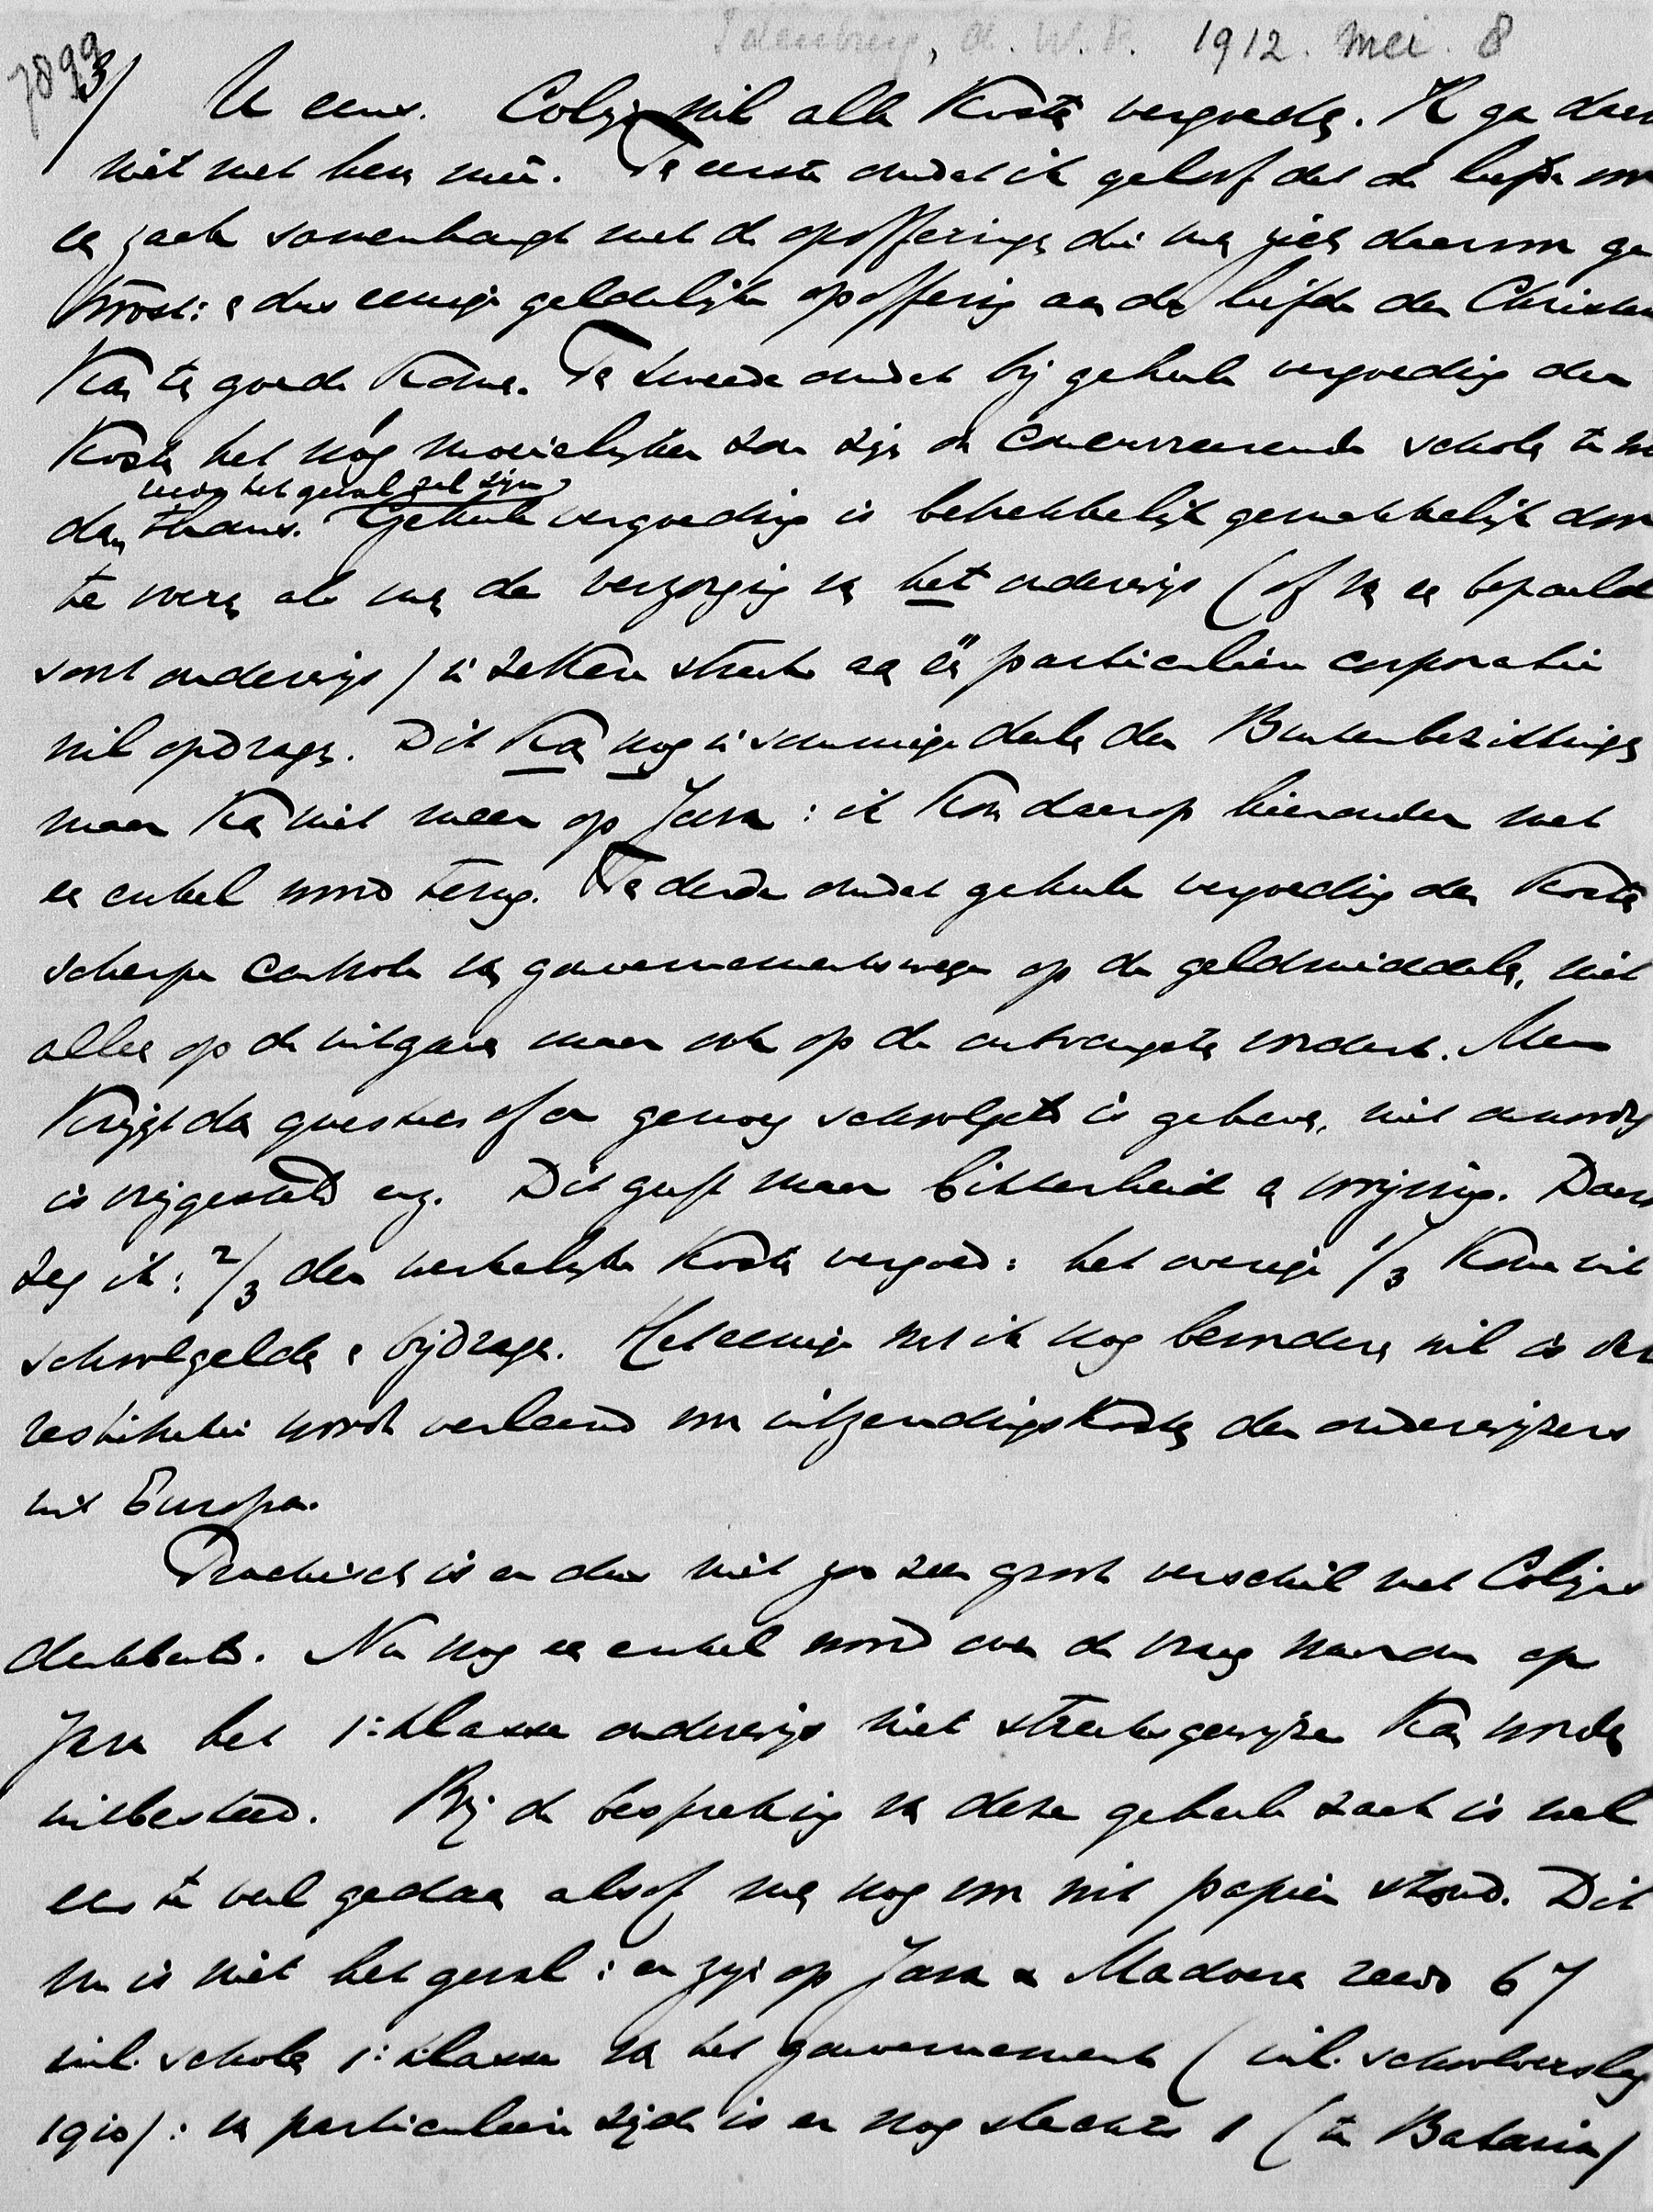 Idenburg, A. W. F. 1912. Mei. 8
7893/
U eens. Colijn wil alle kosten vergoeden. Ik ga daar
niet met hem meê. Ten eerste omdat ik geloof dat de liefde voor
een zaak samenhangt met de opofferingen die men zich daarvoor ge
troost: en dus eenige geldelijke opoffering aan de liefde der Christenen
kan ten goede komen. Ten tweede omdat bij geheele vergoeding der
kosten het nóg moeielijker zou zijn de concurreerende scholen te
waar het geval zal zijn
dan thans. Geheele vergoeding is betrekkelijk gemakkelijk door
te voeren als men de verzorging van het onderwijs (of van een bepaald
soort onderwijs) in zekere streek aan één particuliere corporatie
wil opdragen. Dit kan nog in sommige deelen der Buitenbezittingen
maar kan niet meer op Java: ik kom daarop hieronder met
een enkel woord terug. Ten derde omdat geheele vergoeding der kosten
scherpe controle van gouvernementswege op de geldmiddelen, niet
alleen op de uitgaven maar ook op de ontvangsten vordert. Men
krijgt dan questies of er genoeg schoolgeld is geheven, niet onnoodig
is vrijgesteld enz. Dit geeft maar bitterheid en wrijving. Daarom
zeg ik: 2/3 der werkelijke kosten vergoed: het overige 1/3 kome uit
schoolgelden en bijdragen. Het eenige wat ik nog bovendien wil is dat
restitutie wordt verleend voor uitzendingskosten der onderwijzers
uit Europa.
Practisch is er dus niet zoo zeer groot verschil met Colijns
denkbeeld. Nu nog een enkel woord over de vraag waarom op
Java het 1e klasse onderwijs niet streeksgewijze kan worden
uitbesteed. Bij de bespreking van deze geheele zaak is wel
eens te veel gedaan alsof men nog voor wit papier stond. Dit
nu is niet het geval: er zijn op Java en Madoera reeds 67
inl. scholen 1e klasse van het gouvernement (inl. schoolverslag
1910): van particuliere zijde is er nog slechts 1 (te Batavia)